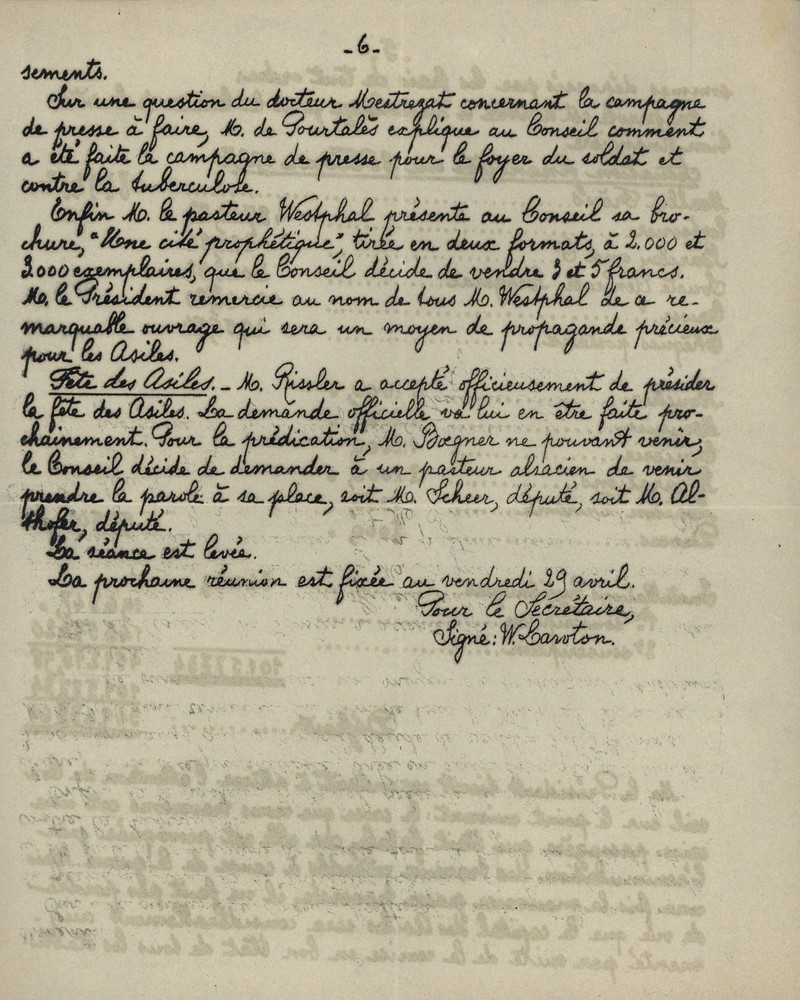 -6-
sements.
Sur une question du docteur Mestrezat concernant la campagne
de presse à faire, M. de Pourtalès explique au Conseil comment
a été faite la campagne de presse pour le foyer du soldat et
contre la tuberculose.
Enfin M. le pasteur Westphal présente au Conseil sa bro-
chure, "Une cité prophétique", tirée en deux formats, à 2.000 et
3.000 exemplaires, que le Conseil décide de vendre 3 et 5 francs.
M. le Président remercie au nom de tous M. Westphal de ce re-
marquable ouvrage qui sera un moyen de propagande précieux
pour les Asiles.
Fête des Asiles. - M. Rissler a accepté officieusement de présider
la fête des Asiles. La demande officielle va lui en être faite pro-
chainement. Pour la prédication, M. Boegner ne pouvant venir,
le Conseil décide de demander à un pasteur alsacien de venir
prendre la parole à sa place, soit M. Scheer, député, soit M. Al-
thofer, député.
La séance est levée.
La prochaine réunion est fixée au vendredi 29 avril.
Pour le Secrétaire,
Signé: W.